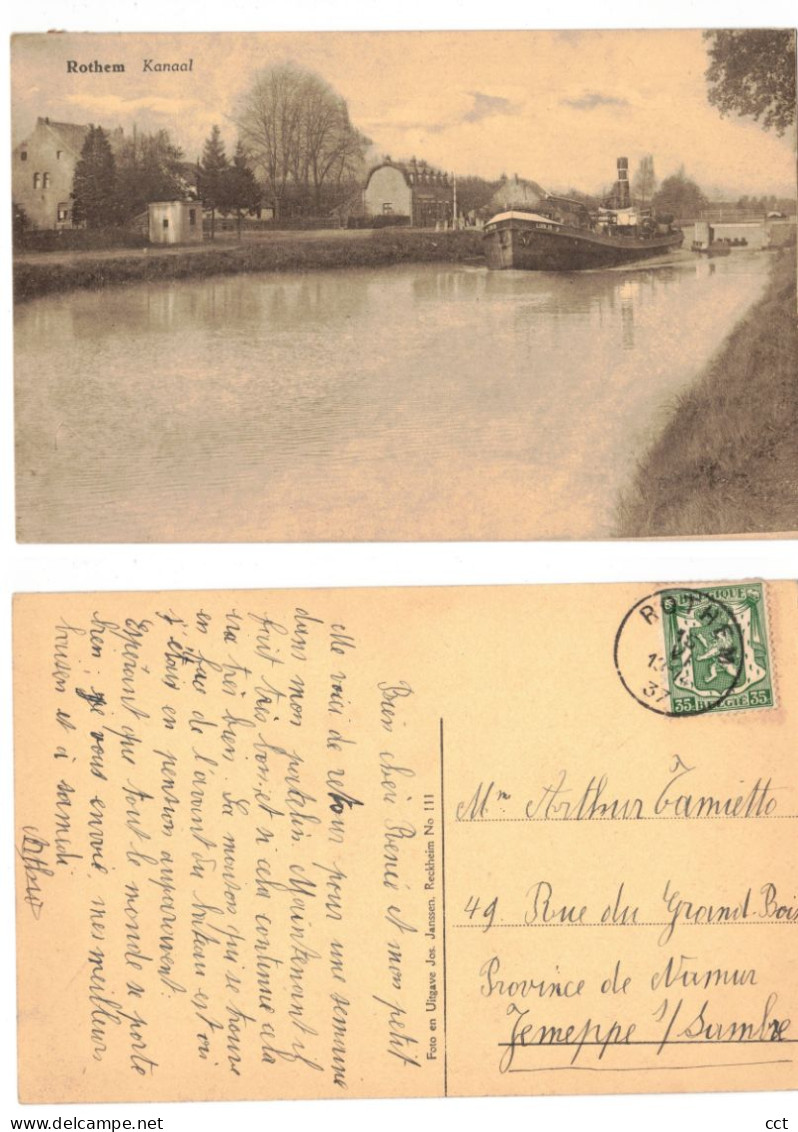 Rothem Kanaal
BELGIQUE
ROTHEM
37
35
35
BELGIË
Bien chère Renée et mon petit
Me voici de retour pour une semaine
dans mon patelin. Maintenant il
fait très bon et si cela continue cela
ira très bien. La maison qui se trouve
en face de l'avant du bateau est où
j'étais en pension auparavant.
Espérant que tout le monde se porte
bien, je vous envoie, mes meilleurs
baisers et à samedi
Foto en Uitgave Jos. Janssen. Reckheim No 111
Mr Arthur Tamietto
49. Rue du Grand-Bois
Province de Namur
Jemeppe s/Sambre
delcampe.net
cct